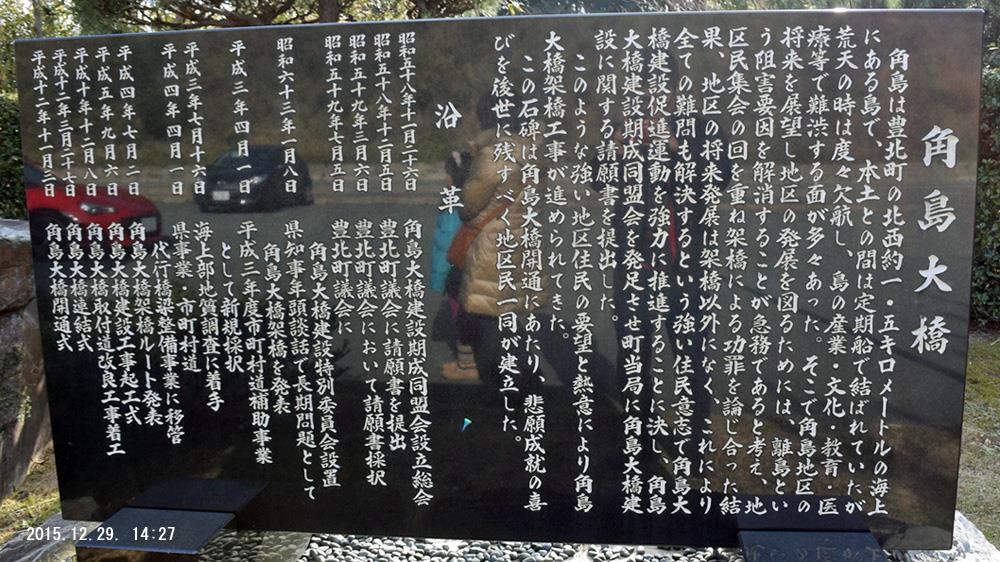 角島大橋
角島は豊北町の北西約一・五キロメートルの海上
にある島で、本土との間は定期船で結ばれていたが
荒天の時は度々欠航し、島の産業・文化・教育・医
療等で難渋する面が多々あった。そこで角島地区の
将来を展望し地区の発展を図るためには、離島とい
う阻害要因を解消することが急務であると考え、地
区民集会の回を重ね架橋による功罪を論じ合った結
果、地区の将来発展は架橋以外になく、これにより
全ての難問も解決するという強い住民意志で角島大
橋建設促進運動を強力に推進することに決し、角島
大橋建設期成同盟会を発足させ町当局に角島大橋建
設に関する請願書を提出した。
このような強い地区住民の要望と熱意により角島
大橋架橋工事が進められてきた。
この石碑は角島大橋開通にあたり、悲願成就の喜
びを後世に残すべく地区民一同が建立した。
沿革
昭和五十八年十一月二十六日 角島大橋建設期成同盟会設立総会
昭和五十八年十二月五日 豊北町議会に請願書を提出
昭和五十九年三月六日 豊北町議会において請願書採択
昭和五十九年七月五日 豊北町議会に
角島大橋建設特別委員会設置
昭和六十三年一月八日 県知事年頭談話で長期問題として
角島大橋架橋を発表
平成三年四月一日 平成三年度市町村道補助事業
として新規採択
平成三年七月十六日 海上部地質調査に着手
平成四年四月一日 県事業・市町村道
代行橋梁整備事業に移管
平成四年七月二日 角島大橋架橋ルート発表
平成五年九月二日 角島大橋建設工事起工式
平成十年十二月八日 角島大橋取付道改良工事着工
平成十二年三月二十七日 角島大橋連結式
平成十二年十一月三日 角島大橋開通式
2015.12.29. 14:27